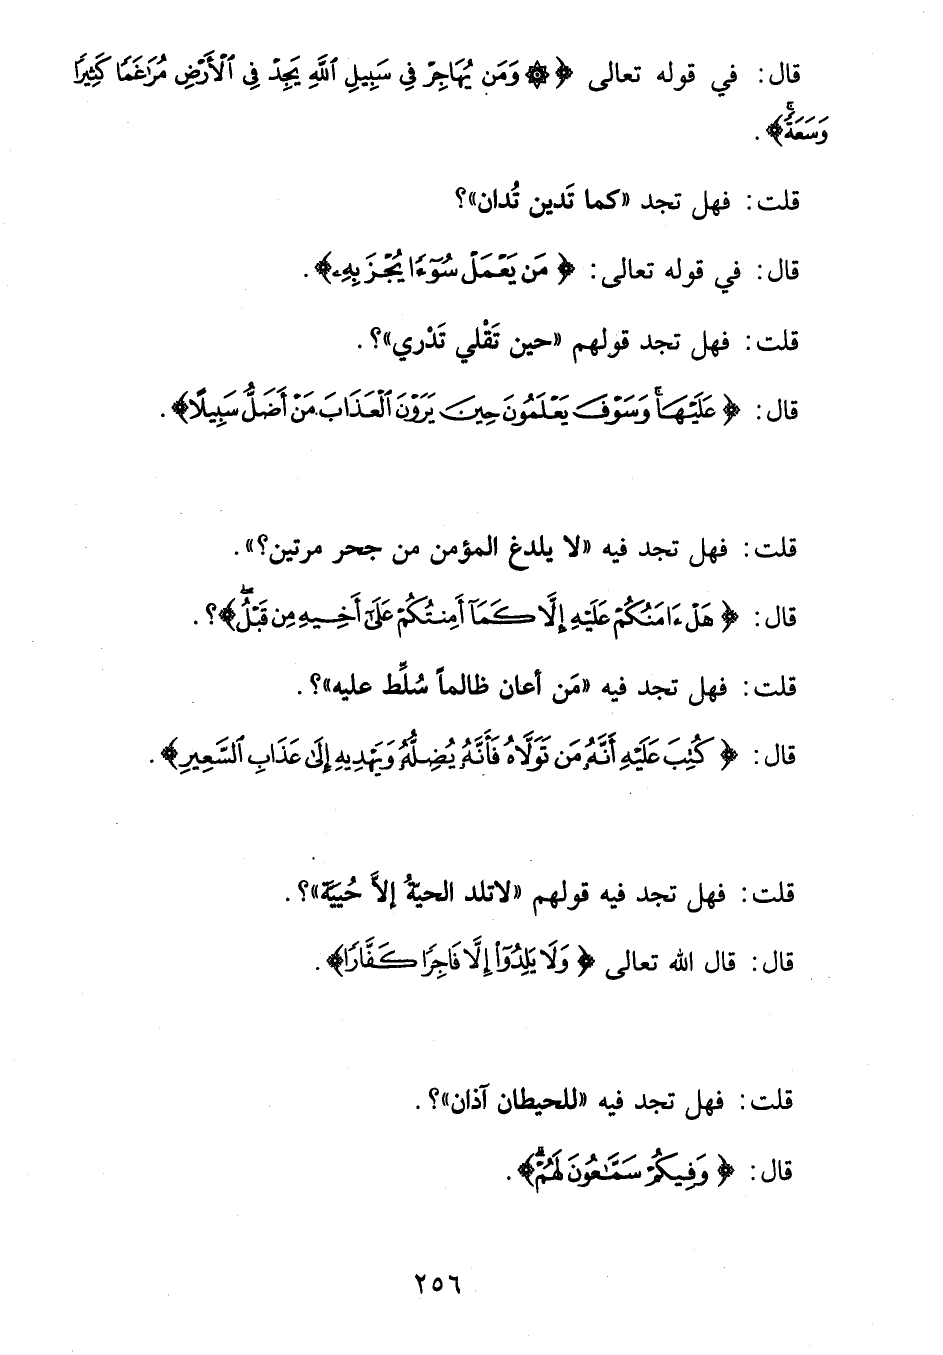 قال: في قوله تعالى ﴿۞ وَمَن يُهَاجِرْ فِي سَبِيلِ ٱللَّهِ يَجِدْ فِي ٱلْأَرْضِ مُرَٰغَمًا كَثِيرًا
وَسَعَةًۚ﴾.
قلت: فهل تجد «كما تَدين تُدان»؟
قال: في قوله تعالى: ﴿مَن يَعْمَلْ سُوٓءًا يُجْزَ بِهِۦ﴾.
قلت: فهل تجد قولهم «حين تَقْلي تَدْري»؟.
قال: ﴿عَلَيْهَاۚ وَسَوْفَ يَعْلَمُونَ حِينَ يَرَوْنَ ٱلْعَذَابَ مَنْ أَضَلُّ سَبِيلًا﴾.
قلت: فهل تجد فيه «لا يلدغ المؤمن من جحر مرتين؟».
قال: ﴿هَلْ ءَامَنُكُمْ عَلَيْهِ إِلَّا كَمَآ أَمِنتُكُمْ عَلَىٰٓ أَخِيهِ مِن قَبْلُۖ﴾؟.
قلت: فهل تجد فيه «مَن أعان ظالماً سُلِّط عليه»؟.
قال: ﴿كُتِبَ عَلَيْهِ أَنَّهُۥ مَن تَوَلَّاهُ فَأَنَّهُۥ يُضِلُّهُۥ وَيَهْدِيهِ إِلَىٰ عَذَابِ ٱلسَّعِيرِ﴾.
قلت: فهل تجد فيه قولهم «لاتلد الحيّةُ إلاَّ حُيَيَّة»؟.
قال: قال الله تعالى ﴿وَلَا يَلِدُوٓا۟ إِلَّا فَاجِرًا كَفَّارًا﴾.
قلت: فهل تجد فيه «للحيطان آذان»؟.
قال: ﴿وَفِيكُمْ سَمَّٰعُونَ لَهُمْۗ﴾.
٢٥٦